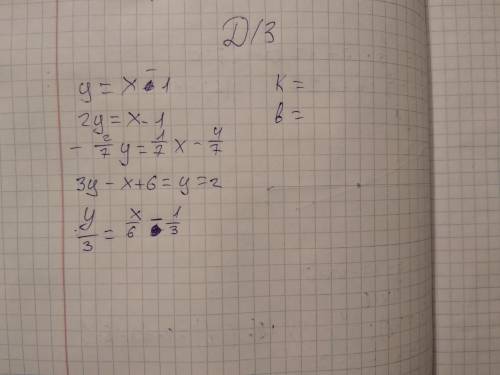 Д/З
y = x - 1
2y = x - 1
- 2/7 y = 1/7 x - 4/7
3y - x + 6 = y = 2
y/3 = x/6 - 1/3
K =
b =